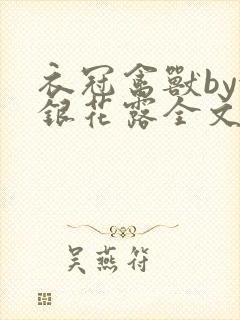 衣冠禽獸by
銀花露全文
吴燕符